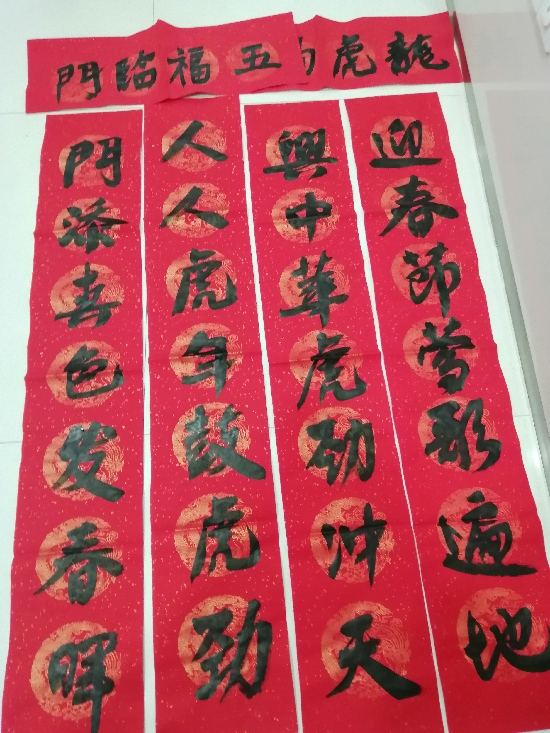 龍虎
五福臨門
迎春節莺歌遍地
興中華虎劲冲天
人人虎年鼓虎劲
門添喜色发春暉